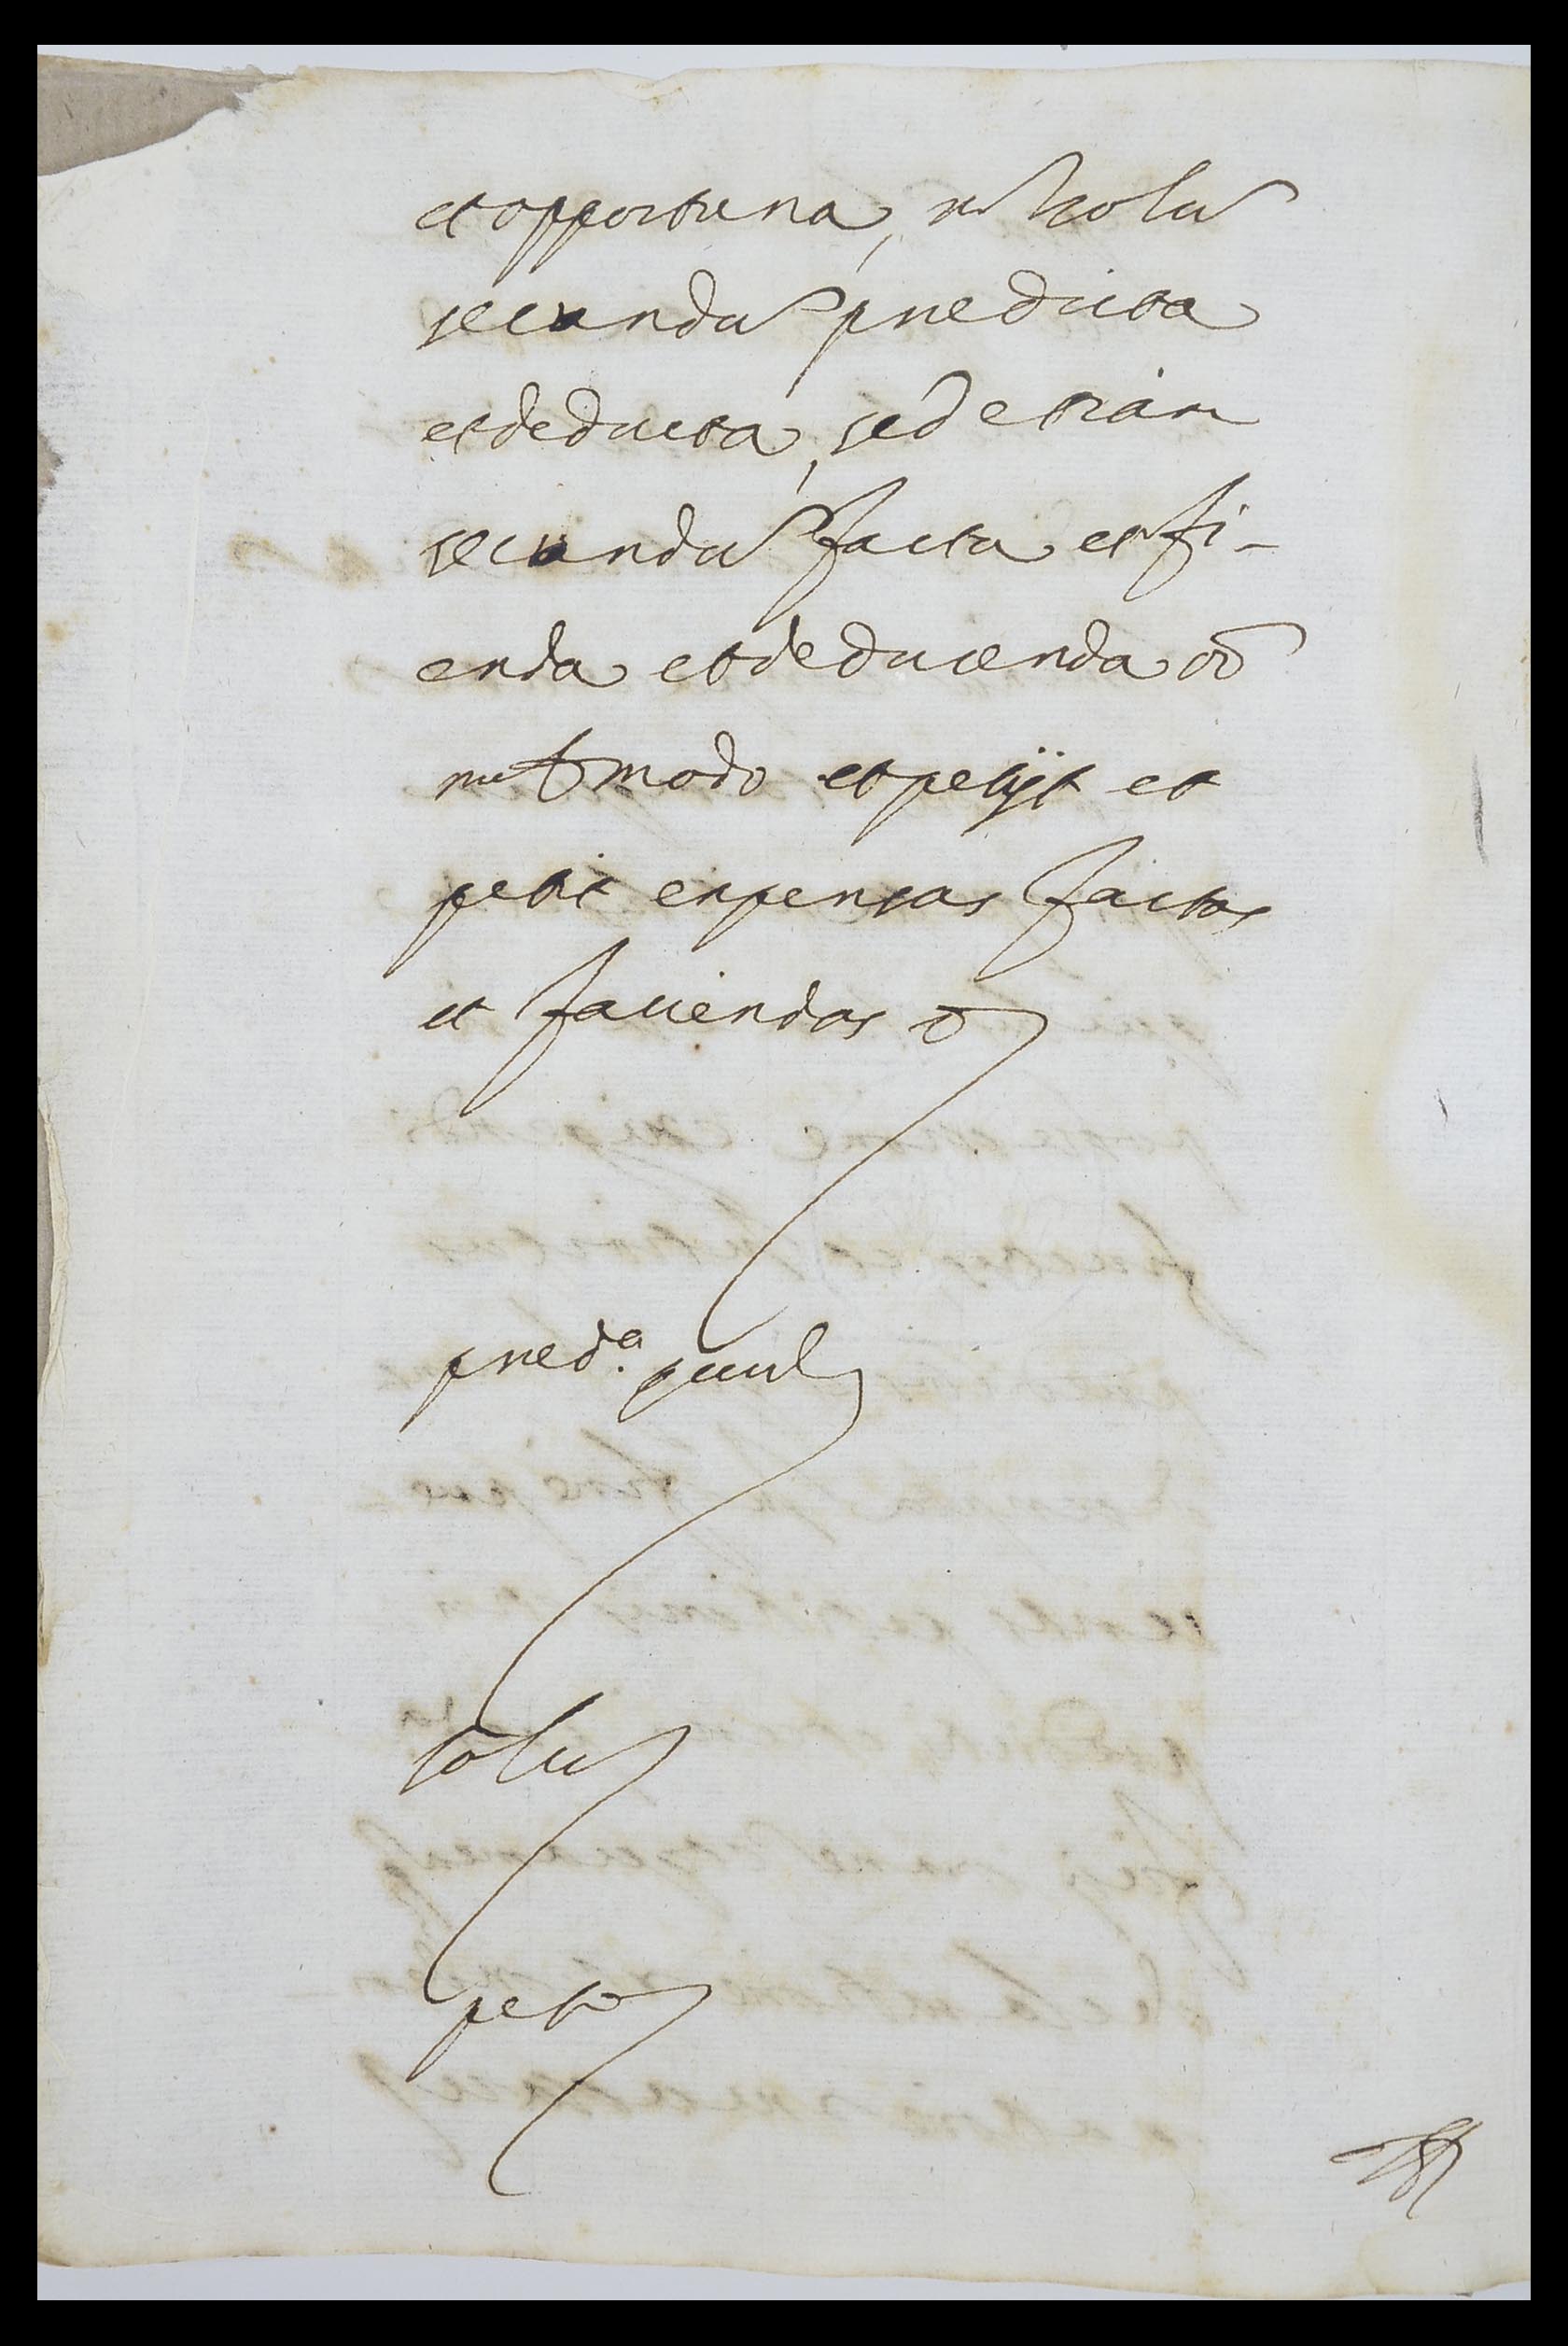 et opportuna, nō solū
secundū predicta
et deducta, sed etiam
secundū facta et fi-
enda et deducenda oō
mĩ modo et petijt et
petit expensas factas
et faciendas &
pred.a
solū
peto